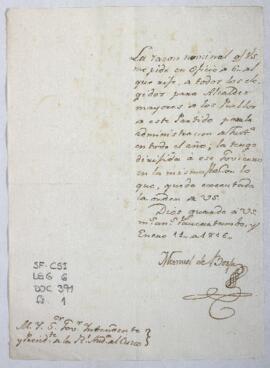 La razon nominal q.e VS.
me pide en Oficio a 6. al
que rije, a todos los ele-
gidos para Alcaldes
mayores a los Pueblos
a este Partido para la
administracion a Just.a
en todo el año; la tengo
dirijida a ese Govierno
en la misma
lo que, queda executada
la orden a VS.
Dios guarde a VS
m.s an.s Paucartambo, y
Enero 12 a 1816.
Manuel de
SF-CSI
LEG 6
DOC 371
f: 1
M. Y. S.or Gov.r Intendente
y Presid.te a la R.l Aud.a al Cuzco